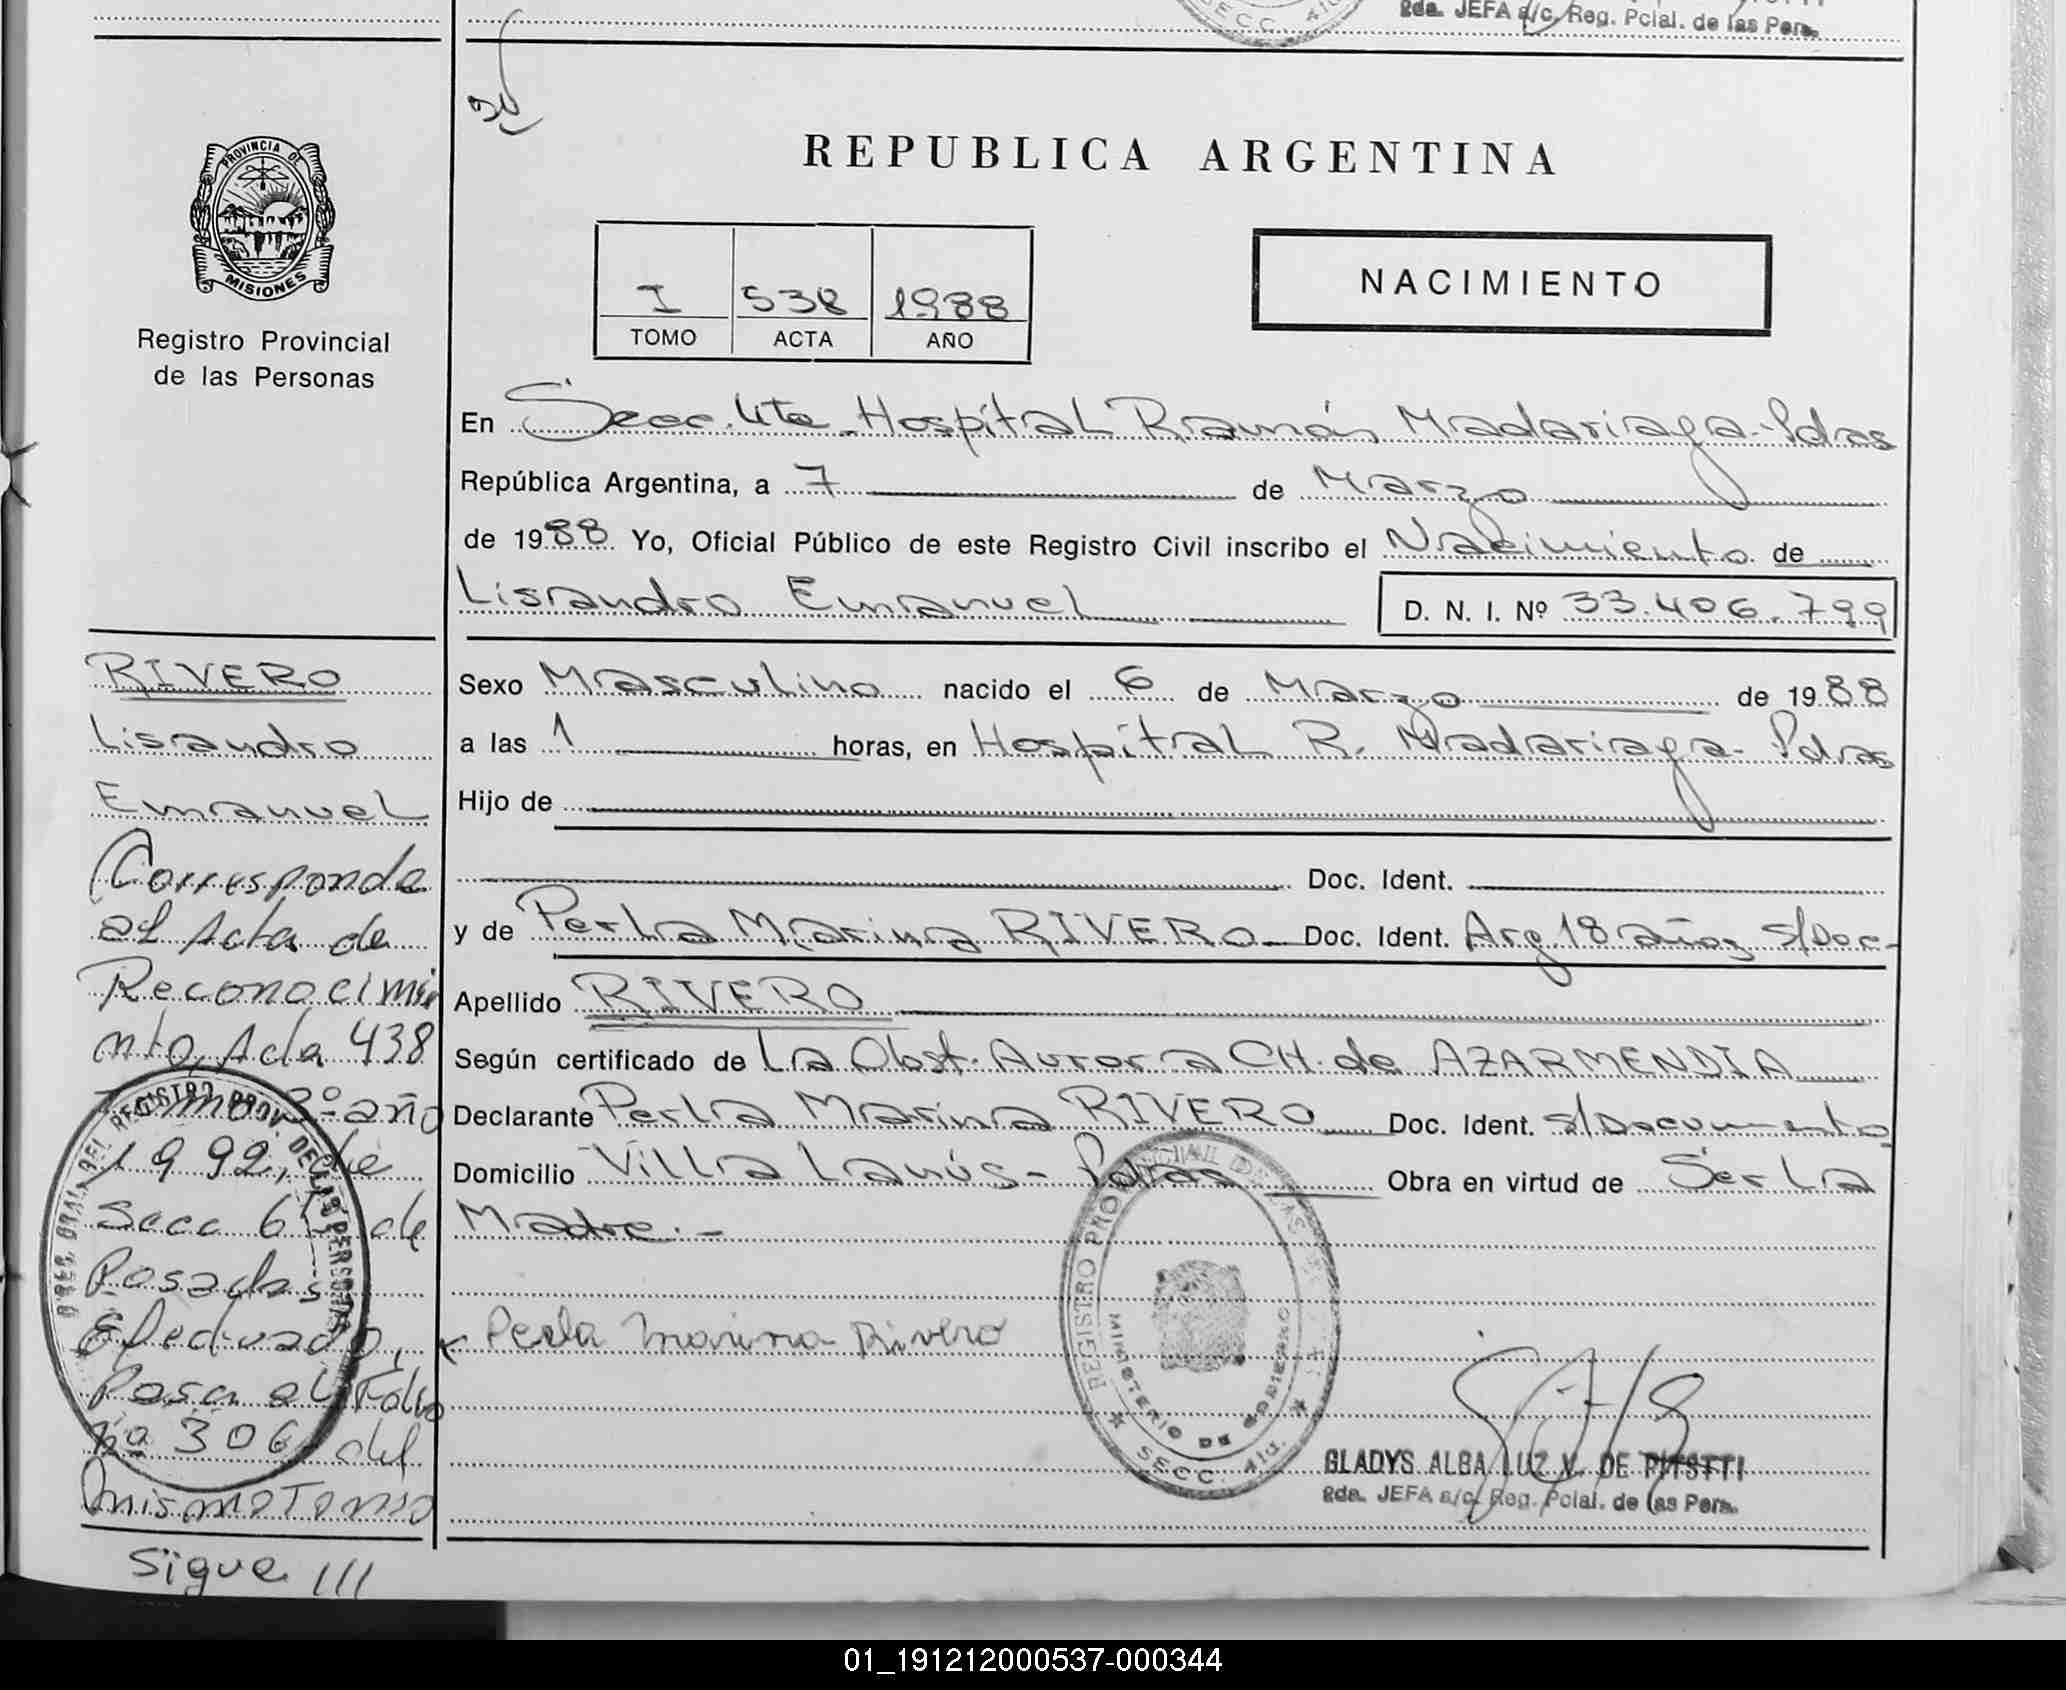 2da. JEFA a/c. Reg. Pcial. de las Pers.
SECC. 4ta.
PROVINCIA DE
MISIONES
Registro Provincial
de las Personas
REPUBLICA ARGENTINA
I 538 1988
TOMO ACTA AÑO
NACIMIENTO
En Secc. 4ta. Hospital Ramón Madariaga - Pdas
República Argentina, a 7 de Marzo
de 1988 Yo, Oficial Público de este Registro Civil inscribo el Nacimiento de
Lisandro Emanuel D. N. I. Nº 33.406.799
Sexo Masculino nacido el 6 de Marzo de 1988
a las 1 horas, en Hospital R. Madariaga - Pdas
Hijo de
Doc. Ident.
y de Perla Marina RIVERO - Doc. Ident. Arg 18 años s/Doc-
Apellido RIVERO
Según certificado de La Obst. Aurora CH. de AZARMENDIA
Declarante Perla Marina RIVERO Doc. Ident. s/Documento
Domicilio Villa Lanús - Pdas Obra en virtud de Ser La
Madre.-
Perla Marina Rivero
REGISTRO PROVINCIAL DE LAS
MINISTERIO DE GOBIERNO
SECC. 4ta.
GLADYS ALBA LUZ V. DE
2da. JEFA a/c. Reg. Pcial. de las Pers.
RIVERO
Lisandro
Emanuel
(Corresponde
al Acta de
Reconocimie
nto, Acta 438
Tomo 2º año
1992, de
Secc 6ª de
Posadas
Efectuado,
Pasa al Folio
nº 306 del
mismo Tomo
Sigue ///
DIREC. GRAL. DEL REGISTRO PROV. DE LAS PERSONAS
01_191212000537-000344